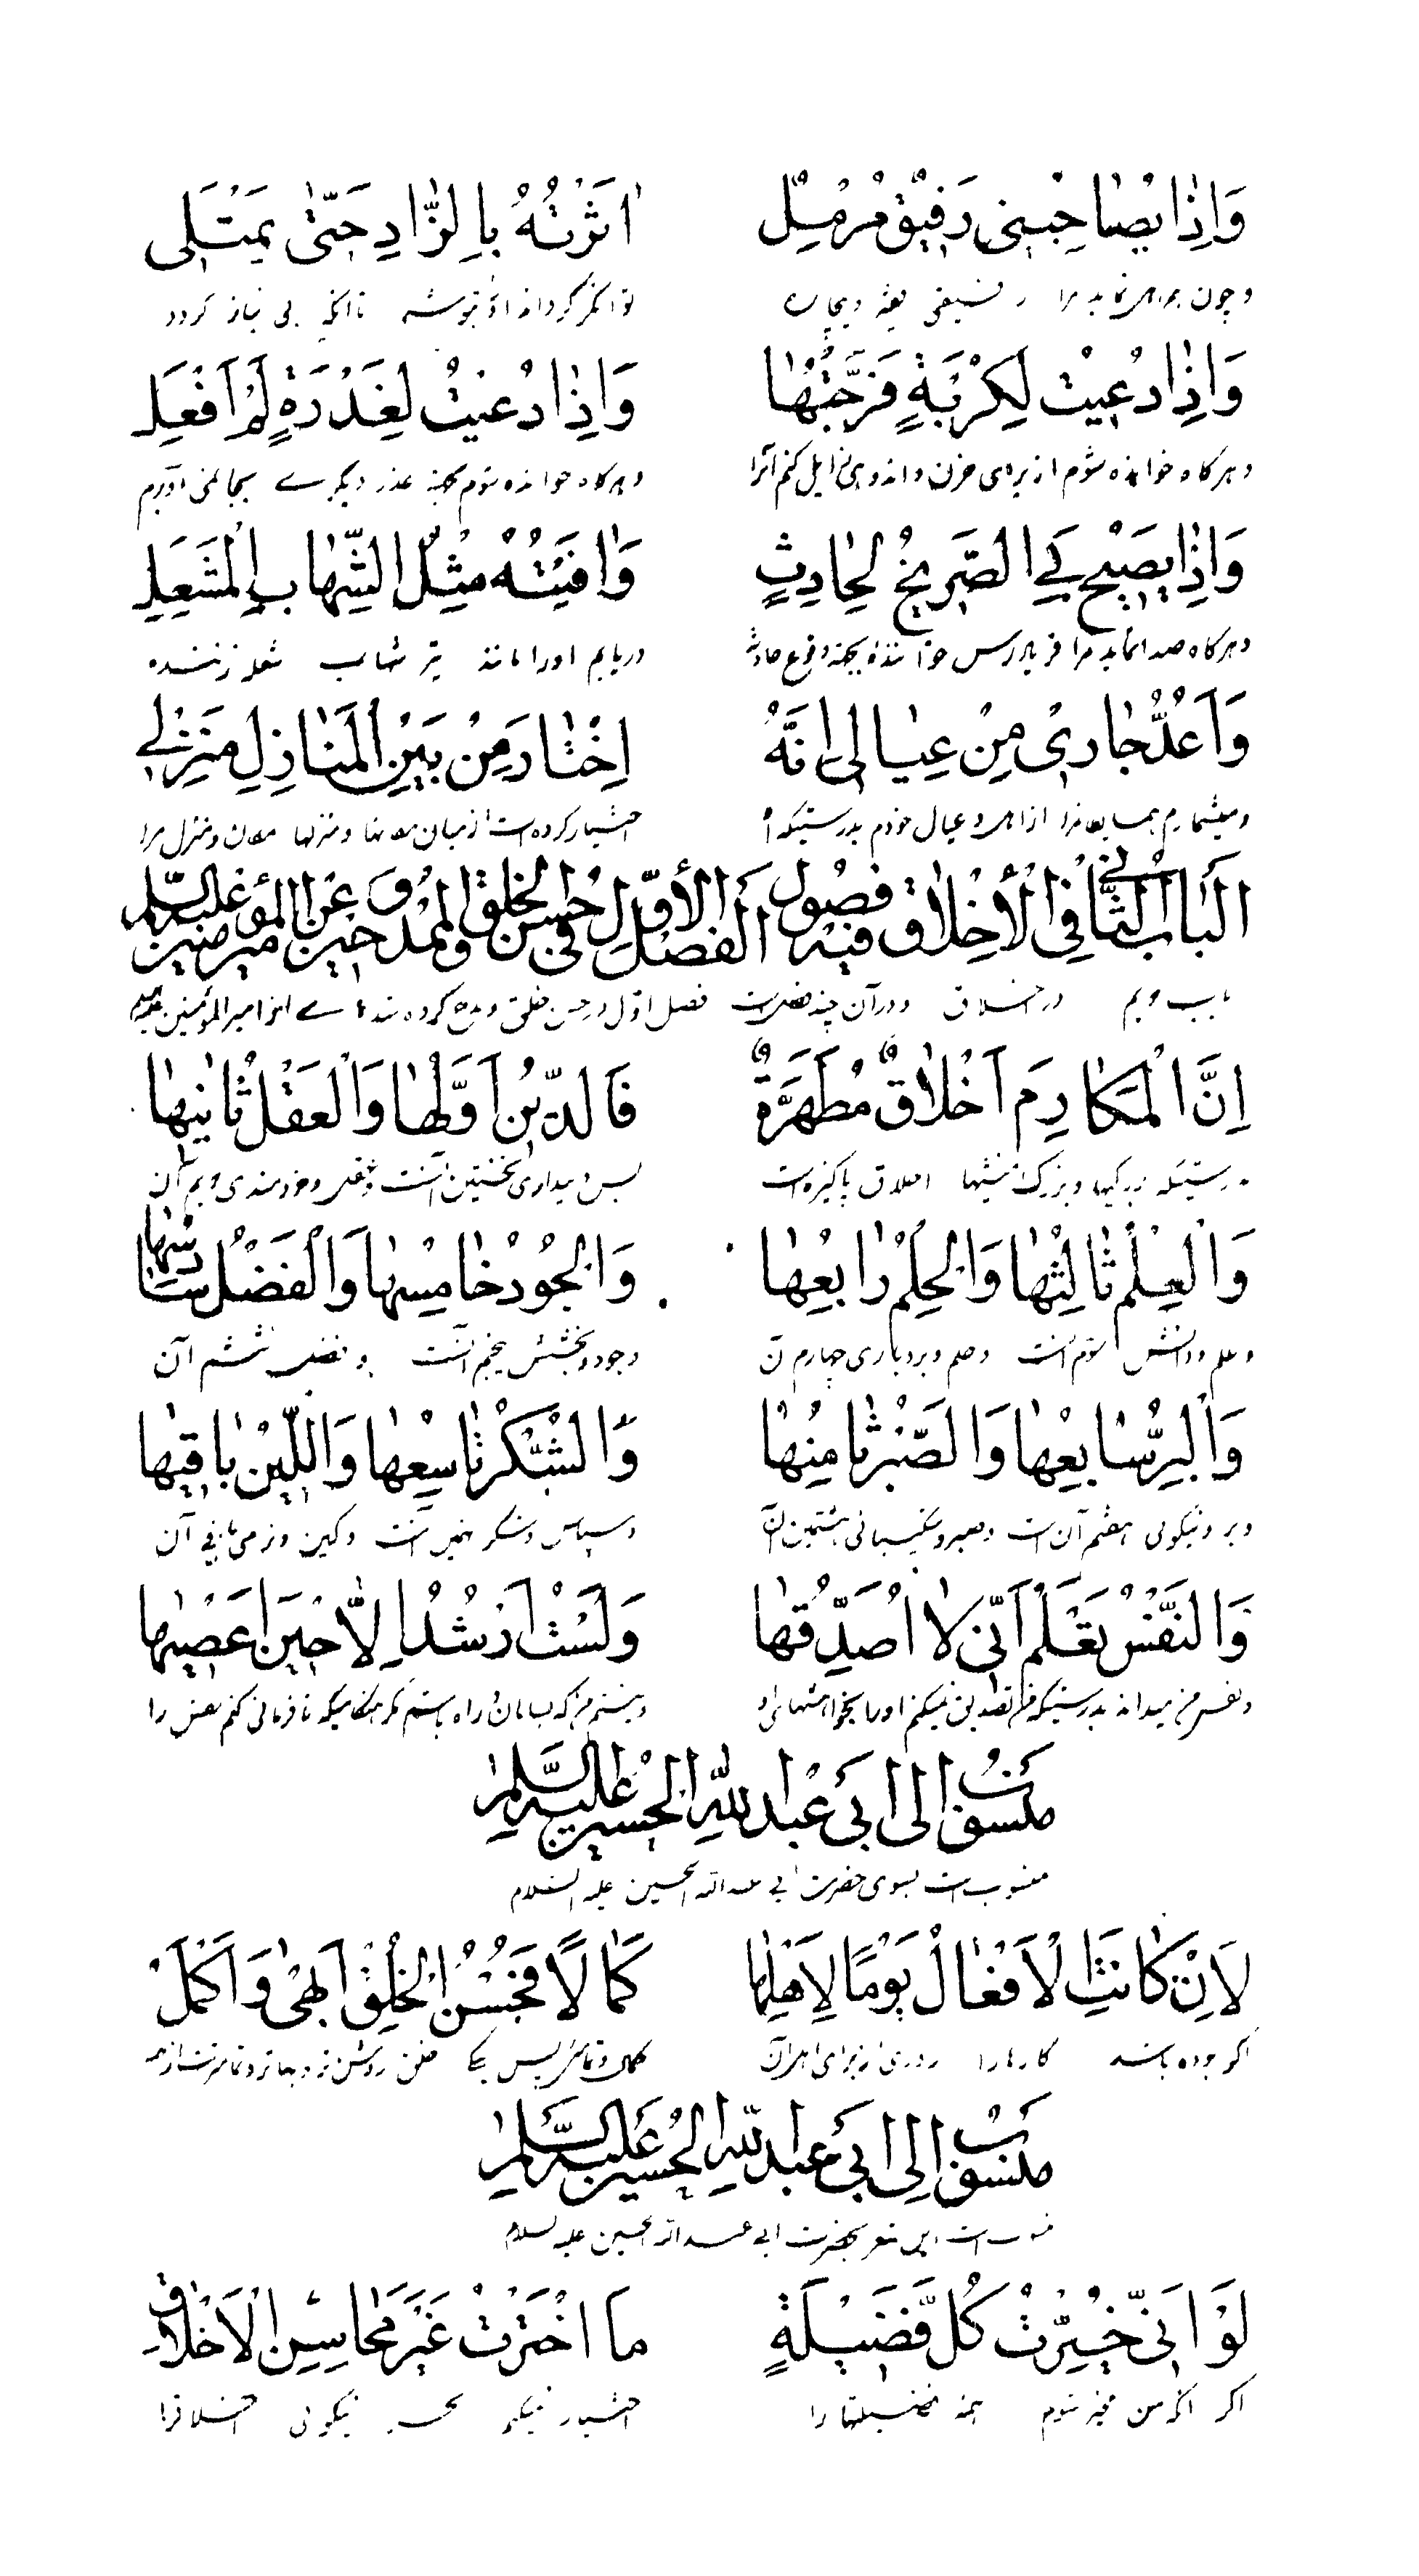 وَاِذٰا يُصٰاحِبُنى رَفيٖقٌ مُرْمِلٌ اٰثَرْتُهُ بِالزّٰادِ حَتّٰى يَمْتَلى
و چون همراهى نمايد مرا رفيقى توانگر گردانم او را بتوشه تا آنكه بى نياز گردد
وَاِذٰا دُعيٖتُ لِكُرْبَةٍ فَرَّجْتُهٰا وَاِذٰا دُعيٖتُ لِغَدْرَةٍ لَمْ اَفْعَلِ
و هرگاه خوانده شوم از براى حزن و اندوهى زايل كنم آنرا و هرگاه خوانده شوم بجهة عذر ديگرے بجا نمى آورم
وَاِذٰا يَصيٖحُ بِىَ الصَّريٖخُ لِحٰادِثٍ وٰافَيْتُهُ مِثْلَ الشِّهٰابِ الْمُشْعَلِ
و هرگاه صدا نمايد مرا فرياد رس خواننده بجهة وقوع حادثه دريابم او را مانند تير شهاب شعله زننده
وَاَعُدُّ جٰارىٖ مِنْ عِيٰالى اِنَّهُ اِخْتٰارَ مِنْ بَيْنِ الْمَنٰازِلِ مَنْزِلى
و ميشمارم همسايه مرا از اهل و عيال خودم بدرستيكه او اختيار كرده است از ميان مكانها و منزلها مكان و منزل مرا
اَلْبٰابُ الثّٰانى فِى الْأَخْلٰاقِ وَفيهِ فُصُول اَلْفَصْلُ الْأَوَّل فى حُسْنِ الْخُلْقِ وَالْمَدْحِ عَنْ اَميرِ الْمُؤْمِنينَ عَلَيْهِ السَّلٰام
باب دويم در اخلاق و در آن چند فصل است فصل اوّل در حسن خلق و مدح كرده شده از امير المؤمنين عليه
اِنَّ الْمَكٰارِمَ اَخْلٰاقٌ مُطَهَّرَةٌ فَالدّيٖنُ اَوَّلُهٰا وَالْعَقْلُ ثٰانيٖهٰا
بدرستيكه بزرگيها و بزرگ منشيها اخلاق پاكيزه است پس ديندارى نخستين آنست و عقل و خردمندى دويم آن
وَالْعِلْمُ ثٰالِثُهٰا وَالْحِلْمُ رٰابِعُهٰا وَالْجُوْدُ خٰامِسُهٰا وَالْفَضْلُ سٰادِسُهٰا
و علم و دانش سوّم آنست و حلم و بردبارى چهارم آن و جود و بخشش پنجم آنست و فضل ششم آن
وَالْبِرُّ سٰابِعُهٰا وَالصَّبْرُ ثٰامِنُهٰا وَالشُّكْرُ تٰاسِعُهٰا وَاللّيٖنُ بٰاقيٖهٰا
و بر و نيكوئى هفتم آن است و صبر و شكيبائى هشتمين آن و سپاس و شكر نهمين آنست و لين و نرمى باقى آن
وَالنَّفْسُ تَعْلَمُ اَنّى لٰا اُصَدِّقُهٰا وَلَسْتُ اَرْشُدُ اِلّٰا حيٖنَ اَعْصيٖهٰا
و نفس من ميداند بدرستيكه من تصديق نميكنم او را و نيستم من كه بسامان و راه باشم مگر هنگاميكه نافرمانى كنم نفس را
مَنْسُوبٌ اِلى اَبىٖ عَبْدِ اللّٰهِ الْحُسَيْن عَلَيْهِ السَّلٰام
منسوب است بسوى حضرت ابى عبد الله الحسين عليه السّلام
لَاِنْ كٰانَتِ الْاَفْعٰالُ يَوْمًا لِاَهْلِهٰا كَمٰالًا فَحُسْنُ الْخُلْقِ اَبْهٰى وَاَكْمَلُ
اگر بوده باشد كارها را روزى از براى اهل آن كمال
مَنْسُوبٌ اِلى اَبىٖ عَبْدِ اللّٰهِ الْحُسَيْن عَلَيْهِ السَّلٰام
منسوب است اين شعر بحضرت ابى عبد الله الحسين عليه السلام
لَوْ اَنَّنىٖ خُيِّرْتُ كُلَّ فَضيٖلَةٍ مٰا اخْتَرْتُ غَيْرَ مَحٰاسِنِ الْاَخْلٰاقِ
اگر آنكه من مخيّر شوم همه فضيلتها را اختيار نيكوئى اخلاق را